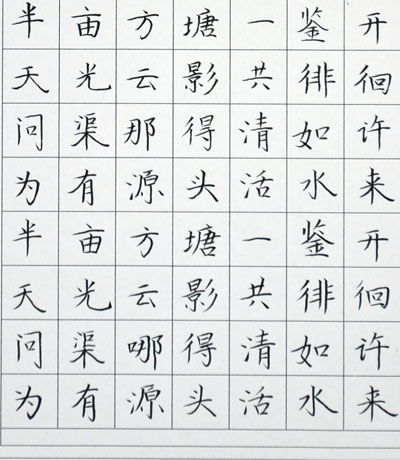 半亩方塘一鉴开
天光云影共徘徊
问渠那得清如许
为有源头活水来
半亩方塘一鉴开
天光云影共徘徊
问渠哪得清如许
为有源头活水来